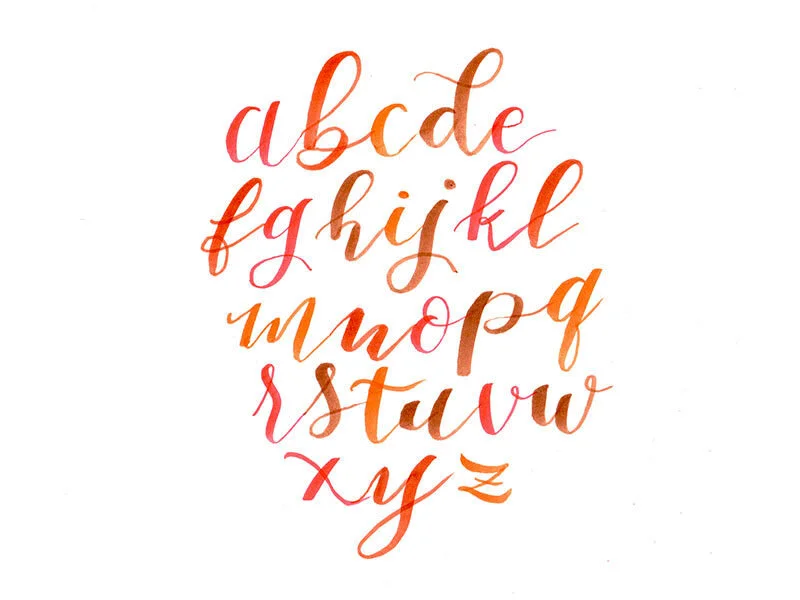 abcde
fghijkl
mnopq
rstuvw
xyz